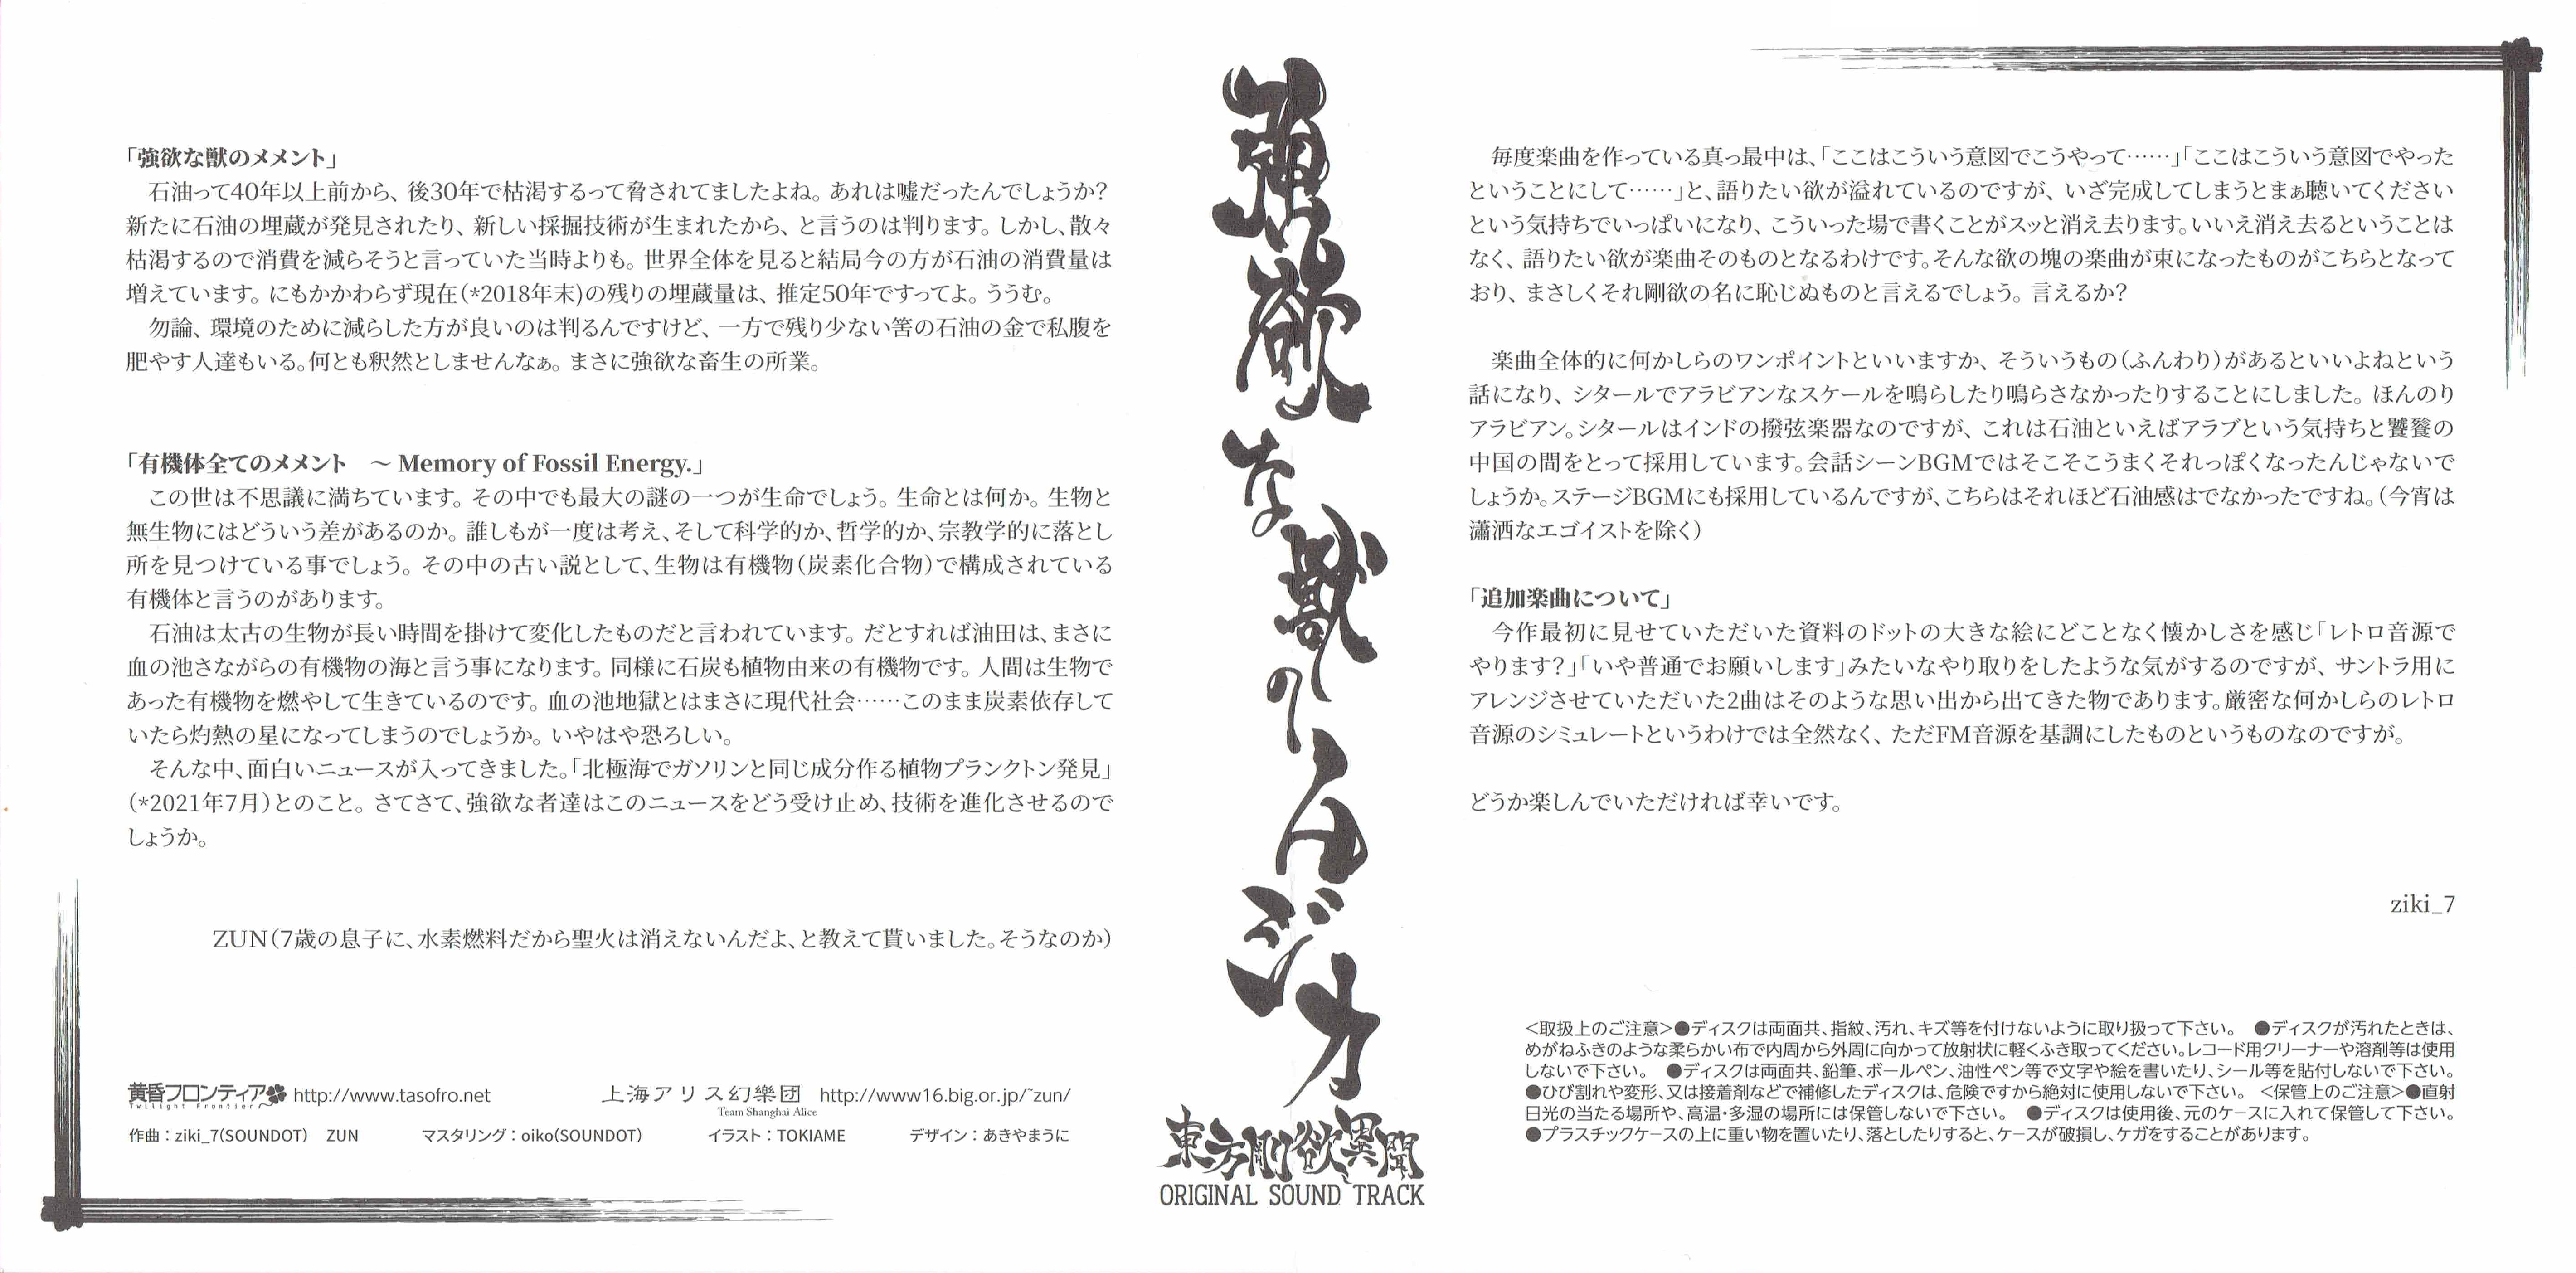 「強欲な獣のメメント」
　石油って40年以上前から、後30年で枯渇するって脅されてましたよね。あれは嘘だったんでしょうか？
新たに石油の埋蔵が発見されたり、新しい採掘技術が生まれたから、と言うのは判ります。しかし、散々
枯渇するので消費を減らそうと言っていた当時よりも。世界全体を見ると結局今の方が石油の消費量は
増えています。にもかかわらず現在（*2018年末)の残りの埋蔵量は、推定50年ですってよ。ううむ。
　勿論、環境のために減らした方が良いのは判るんですけど、一方で残り少ない筈の石油の金で私腹を
肥やす人達もいる。何とも釈然としませんなぁ。まさに強欲な畜生の所業。
「有機体全てのメメント　～ Memory of Fossil Energy.」
　この世は不思議に満ちています。その中でも最大の謎の一つが生命でしょう。生命とは何か。生物と
無生物にはどういう差があるのか。誰しもが一度は考え、そして科学的か、哲学的か、宗教学的に落とし
所を見つけている事でしょう。その中の古い説として、生物は有機物（炭素化合物）で構成されている
有機体と言うのがあります。
　石油は太古の生物が長い時間を掛けて変化したものだと言われています。だとすれば油田は、まさに
血の池さながらの有機物の海と言う事になります。同様に石炭も植物由来の有機物です。人間は生物で
あった有機物を燃やして生きているのです。血の池地獄とはまさに現代社会……このまま炭素依存して
いたら灼熱の星になってしまうのでしょうか。いやはや恐ろしい。
　そんな中、面白いニュースが入ってきました。「北極海でガソリンと同じ成分作る植物プランクトン発見」
（*2021年7月）とのこと。さてさて、強欲な者達はこのニュースをどう受け止め、技術を進化させるので
しょうか。
ZUN（7歳の息子に、水素燃料だから聖火は消えないんだよ、と教えて貰いました。そうなのか）
黄昏フロンティア http://www.tasofro.net
Twilight Frontier
上海アリス幻樂団 http://www16.big.or.jp/~zun/
Team Shanghai Alice
作曲：ziki_7(SOUNDOT)　ZUN　マスタリング：oiko(SOUNDOT)　イラスト：TOKIAME　デザイン：あきやまうに
強欲な獣のメメント
東方剛欲異聞
ORIGINAL SOUND TRACK
　毎度楽曲を作っている真っ最中は、「ここはこういう意図でこうやって……」「ここはこういう意図でやった
ということにして……」と、語りたい欲が溢れているのですが、いざ完成してしまうとまぁ聴いてください
という気持ちでいっぱいになり、こういった場で書くことがスッと消え去ります。いいえ消え去るということは
なく、語りたい欲が楽曲そのものとなるわけです。そんな欲の塊の楽曲が束になったものがこちらとなって
おり、まさしくそれ剛欲の名に恥じぬものと言えるでしょう。言えるか？
　楽曲全体的に何かしらのワンポイントといいますか、そういうもの（ふんわり）があるといいよねという
話になり、シタールでアラビアンなスケールを鳴らしたり鳴らさなかったりすることにしました。ほんのり
アラビアン。シタールはインドの撥弦楽器なのですが、これは石油といえばアラブという気持ちと饕餮の
中国の間をとって採用しています。会話シーンBGMではそこそこうまくそれっぽくなったんじゃないで
しょうか。ステージBGMにも採用しているんですが、こちらはそれほど石油感はでなかったですね。（今宵は
瀟洒なエゴイストを除く）
「追加楽曲について」
　今作最初に見せていただいた資料のドットの大きな絵にどことなく懐かしさを感じ「レトロ音源で
やります？」「いや普通でお願いします」みたいなやり取りをしたような気がするのですが、サントラ用に
アレンジさせていただいた2曲はそのような思い出から出てきた物であります。厳密な何かしらのレトロ
音源のシミュレートというわけでは全然なく、ただFM音源を基調にしたものというものなのですが。
どうか楽しんでいただければ幸いです。
ziki_7
＜取扱上のご注意＞●ディスクは両面共、指紋、汚れ、キズ等を付けないように取り扱って下さい。　●ディスクが汚れたときは、
めがねふきのような柔らかい布で内周から外周に向かって放射状に軽くふき取ってください。レコード用クリーナーや溶剤等は使用
しないで下さい。　●ディスクは両面共、鉛筆、ボールペン、油性ペン等で文字や絵を書いたり、シール等を貼付しないで下さい。
●ひび割れや変形、又は接着剤などで補修したディスクは、危険ですから絶対に使用しないで下さい。　＜保管上のご注意＞●直射
日光の当たる場所や、高温・多湿の場所には保管しないで下さい。　●ディスクは使用後、元のケースに入れて保管して下さい。
●プラスチックケースの上に重い物を置いたり、落としたりすると、ケースが破損し、ケガをすることがあります。